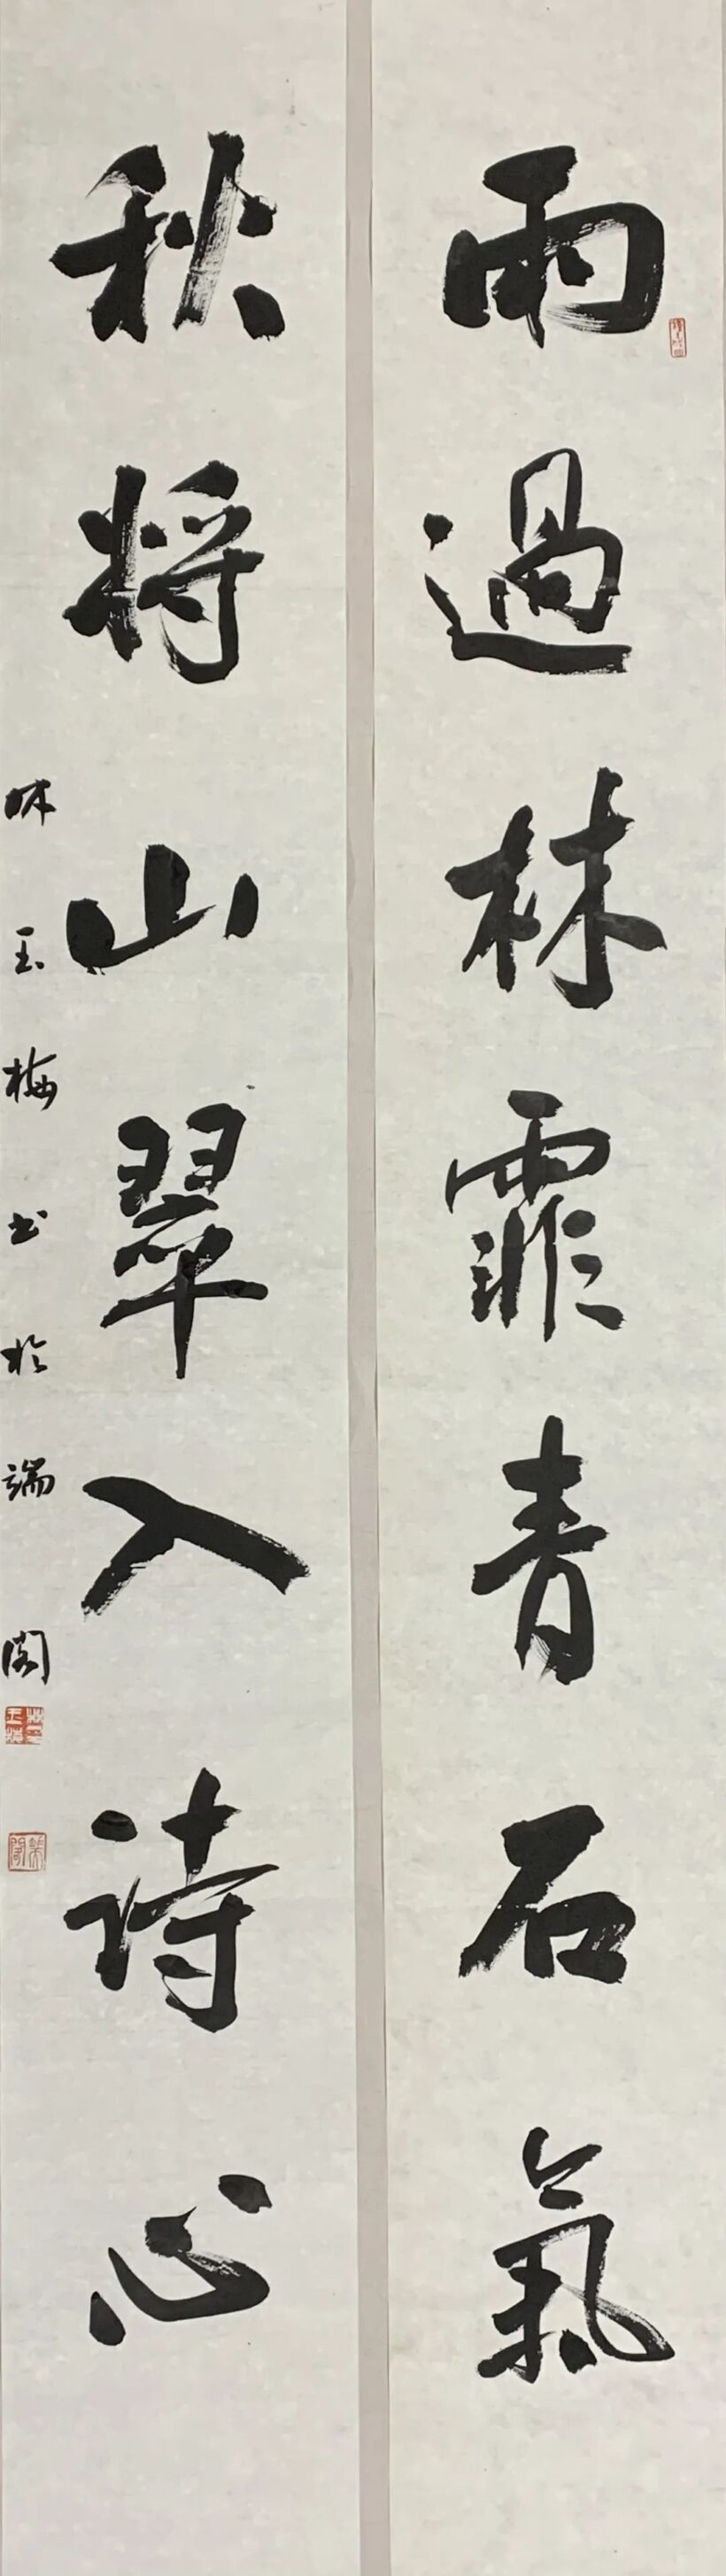 雨過林霏青石氣
秋将山翠入诗心
玉梅书於端阁